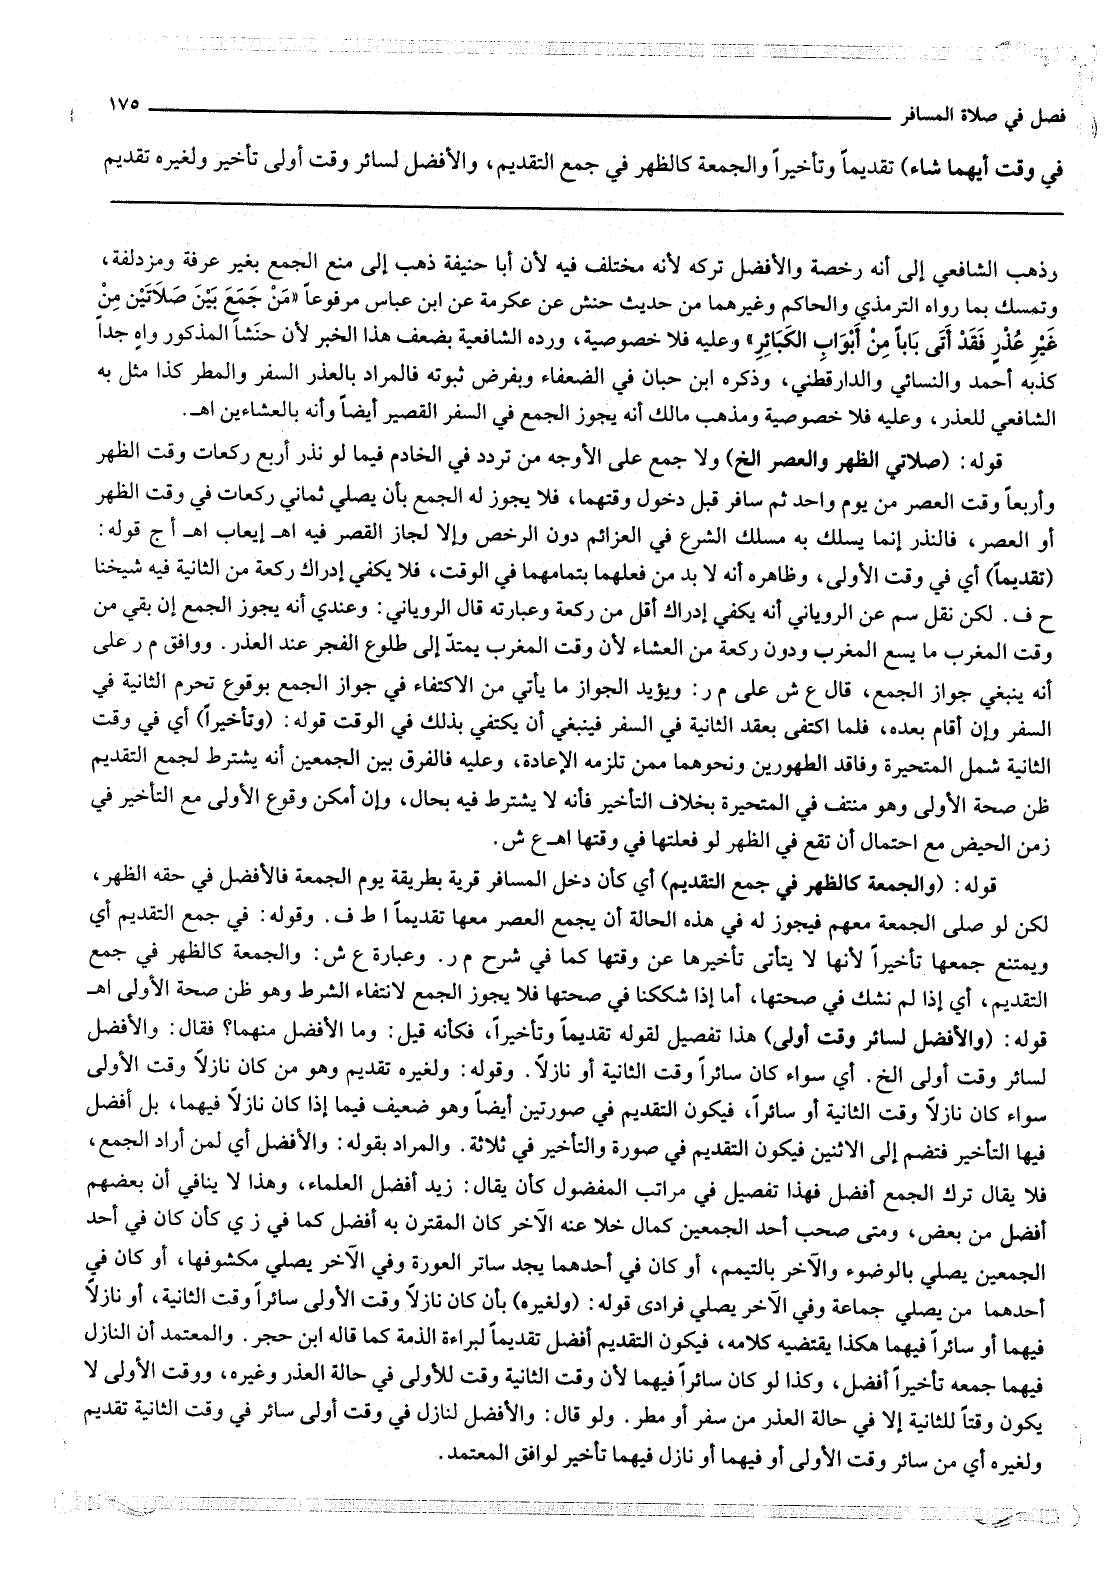 فصل في صلاة المسافر ١٧٥
في وقت أيهما شاء) تقديماً وتأخيراً والجمعة كالظهر في جمع التقديم، والأفضل لسائر وقت أولى تأخير ولغيره تقديم
رذهب الشافعي إلى أنه رخصة والأفضل تركه لأنه مختلف فيه لأن أبا حنيفة ذهب إلى منع الجمع بغير عرفة ومزدلفة،
وتمسك بما رواه الترمذي والحاكم وغيرهما من حديث حنش عن عكرمة عن ابن عباس مرفوعاً «مَنْ جَمَعَ بَيْنَ صَلَاتَيْن مِنْ
غَيْرِ عُذْرٍ فَقَدْ أَتَى بَاباً مِنْ أَبْوَابِ الكَبَائِرِ» وعليه فلا خصوصية، ورده الشافعية بضعف هذا الخبر لأن حنَشاً المذكور واهٍ جداً
كذبه أحمد والنسائي والدارقطني، وذكره ابن حبان في الضعفاء وبفرض ثبوته فالمراد بالعذر السفر والمطر كذا مثل به
الشافعي للعذر، وعليه فلا خصوصية ومذهب مالك أنه يجوز الجمع في السفر القصير أيضاً وأنه بالعشاءين اهـ.
قوله: (صلاتي الظهر والعصر الخ) ولا جمع على الأوجه من تردد في الخادم فيما لو نذر أربع ركعات وقت الظهر
وأربعاً وقت العصر من يوم واحد ثم سافر قبل دخول وقتهما، فلا يجوز له الجمع بأن يصلي ثماني ركعات في وقت الظهر
أو العصر، فالنذر إنما يسلك به مسلك الشرع في العزائم دون الرخص وإلا لجاز القصر فيه اهـ إيعاب اهـ أ ج قوله:
(تقديماً) أي في وقت الأولى، وظاهره أنه لا بد من فعلهما بتمامهما في الوقت، فلا يكفي إدراك ركعة من الثانية فيه شيخنا
ح ف. لكن نقل سم عن الروياني أنه يكفي إدراك أقل من ركعة وعبارته قال الروياني: وعندي أنه يجوز الجمع إن بقي من
وقت المغرب ما يسع المغرب ودون ركعة من العشاء لأن وقت المغرب يمتدّ إلى طلوع الفجر عند العذر. ووافق م ر على
أنه ينبغي جواز الجمع، قال ع ش على م ر: ويؤيد الجواز ما يأتي من الاكتفاء في جواز الجمع بوقوع تحرم الثانية في
السفر وإن أقام بعده، فلما اكتفى بعقد الثانية في السفر فينبغي أن يكتفي بذلك في الوقت قوله: (وتأخيراً) أي في وقت
الثانية شمل المتحيرة وفاقد الطهورين ونحوهما ممن تلزمه الإعادة، وعليه فالفرق بين الجمعين أنه يشترط لجمع التقديم
ظن صحة الأولى وهو منتف في المتحيرة بخلاف التأخير فأنه لا يشترط فيه بحال، وإن أمكن وقوع الأولى مع التأخير في
زمن الحيض مع احتمال أن تقع في الظهر لو فعلتها في وقتها اهـ ع ش.
قوله: (والجمعة كالظهر في جمع التقديم) أي كأن دخل المسافر قرية بطريقة يوم الجمعة فالأفضل في حقه الظهر،
لكن لو صلى الجمعة معهم فيجوز له في هذه الحالة أن يجمع العصر معها تقديماً ا ط ف. وقوله: في جمع التقديم أي
ويمتنع جمعها تأخيراً لأنها لا يتأتى تأخيرها عن وقتها كما في شرح م ر. وعبارة ع ش: والجمعة كالظهر في جمع
التقديم، أي إذا لم نشك في صحتها، أما إذا شككنا في صحتها فلا يجوز الجمع لانتفاء الشرط وهو ظن صحة الأولى اهـ
قوله: (والأفضل لسائر وقت أولى) هذا تفصيل لقوله تقديماً وتأخيراً، فكأنه قيل: وما الأفضل منهما؟ فقال: والأفضل
لسائر وقت أولى الخ. أي سواء كان سائراً وقت الثانية أو نازلاً. وقوله: ولغيره تقديم وهو من كان نازلاً وقت الأولى
سواء كان نازلاً وقت الثانية أو سائراً، فيكون التقديم في صورتين أيضاً وهو ضعيف فيما إذا كان نازلاً فيهما، بل أفضل
فيها التأخير فتضم إلى الاثنين فيكون التقديم في صورة والتأخير في ثلاثة. والمراد بقوله: والأفضل أي لمن أراد الجمع،
فلا يقال ترك الجمع أفضل فهذا تفصيل في مراتب المفضول كأن يقال: زيد أفضل العلماء، وهذا لا ينافي أن بعضهم
أفضل من بعض، ومتى صحب أحد الجمعين كمال خلا عنه الآخر كان المقترن به أفضل كما في ز ي كأن كان في أحد
الجمعين يصلي بالوضوء والآخر بالتيمم، أو كان في أحدهما يجد ساتر العورة وفي الآخر يصلي مكشوفها، أو كان في
أحدهما من يصلي جماعة وفي الآخر يصلي فرادى قوله: (ولغيره) بأن كان نازلاً وقت الأولى سائراً وقت الثانية، أو نازلاً
فيهما أو سائراً فيهما هكذا يقتضيه كلامه، فيكون التقديم أفضل تقديماً لبراءة الذمة كما قاله ابن حجر. والمعتمد أن النازل
فيهما جمعه تأخيراً أفضل، وكذا لو كان سائراً فيهما لأن وقت الثانية وقت للأولى في حالة العذر وغيره، ووقت الأولى لا
يكون وقتاً للثانية إلا في حالة العذر من سفر أو مطر. ولو قال: والأفضل لنازل في وقت أولى سائر في وقت الثانية تقديم
ولغيره أي من سائر وقت الأولى أو فيهما أو نازل فيهما تأخير لوافق المعتمد.